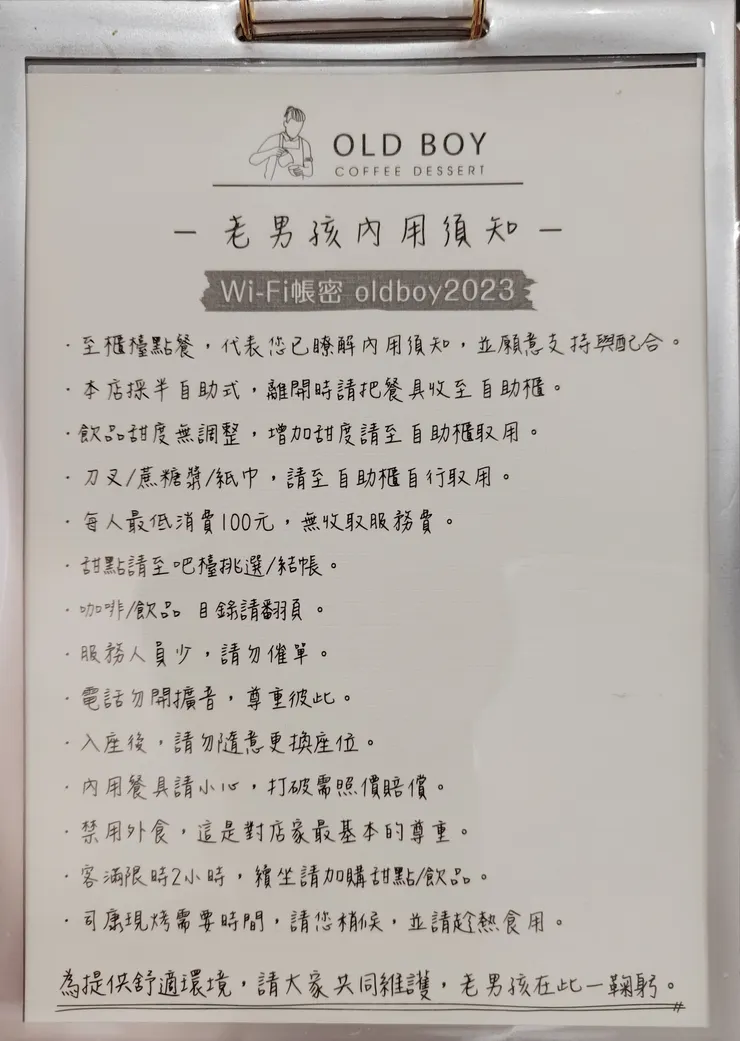 OLD BOY
COFFEE DESSERT
— 老男孩內用須知 —
Wi-Fi帳密 oldboy2023
·至櫃檯點餐，代表您已瞭解內用須知，並願意支持與配合。
·本店採半自助式，離開時請把餐具收至自助櫃。
·飲品甜度無調整，增加甜度請至自助櫃取用。
·刀叉/蔗糖漿/紙巾，請至自助櫃自行取用。
·每人最低消費100元，無收取服務費。
·甜點請至吧檯挑選/結帳。
·咖啡/飲品 目錄請翻頁。
·服務人員少，請勿催單。
·電話勿開擴音，尊重彼此。
·入座後，請勿隨意更換座位。
·內用餐具請小心，打破需照價賠償。
·禁用外食，這是對店家最基本的尊重。
·客滿限時2小時，續坐請加購甜點/飲品。
·司康現烤需要時間，請您稍候，並請趁熱食用。
為提供舒適環境，請大家共同維護，老男孩在此一鞠躬。